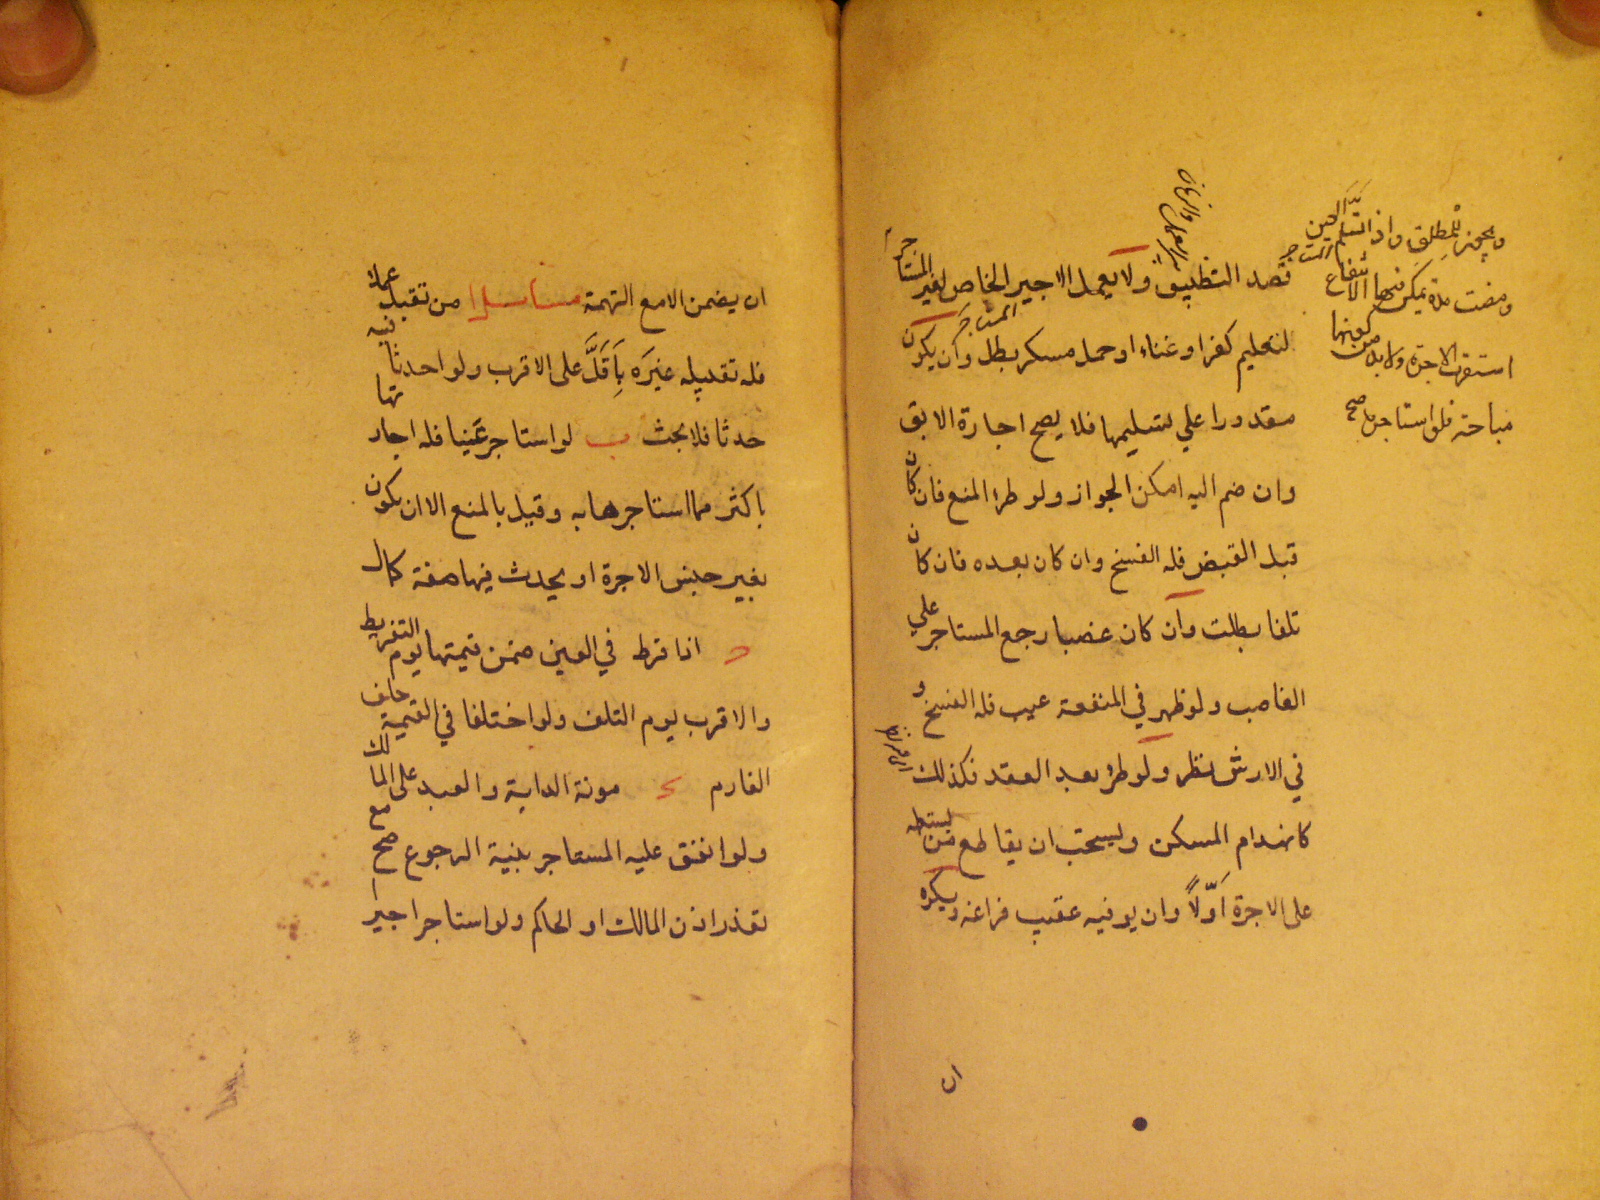 ويجوز للمطلق واذا تسلم العين
ومضت مدة يمكن فيها الانتفاع
استقرت الاجرة ولا بد من كونها
مباحة فلو استاجره صح
قصد التطبيق ولا يعمل الاجير الخاص لغير المستاجر
لتعليم كفر او غناء او حمل مسكر بطل وان يكون
مقدورا علي تسليمها فلا يصح اجارة الابق
وان ضم اليه امكن الجواز ولو طرا المنع فان كان
قبل القبض فله الفسخ وان كان بعده فان كان
تلفا بطلت وان كان غصبا رجع المستاجر علي
الغاصب ولو ظهر في المنفعة عيب فله الفسخ و
في الارش نظر ولو طرا بعد العقد فكذلك
كانهدام المسكن ويستحب ان يقاطع من يستعمله
على الاجرة اَوّلاً وان يوفيه عقيب فراغه ويكره
ان
ان يضمن الا مع التهمة مسائل ا من تقبل عملا
فله تقبيله غيَره بِاَقَلَّ على الاقرب ولو احدث فيه
حدثا فلا بحث ب لو استاجر عينا فله اجارتها
باكثر مما استاجرها به وقيل بالمنع الا ان يكون
بغير جنس الاجرة او يحدث فيها صفة كمال
ح اذا فرط في العين ضمن قيمتها يوم التفريط
والاقرب يوم التلف ولو اختلفا في القيمة حلف
الغارم د مونة الدابة والعبد على المالك
ولو انفق عليه المستاجر بنية الرجوع صح مع
تعذر اذن المالك او الحاكم ولو استاجر اجيرا